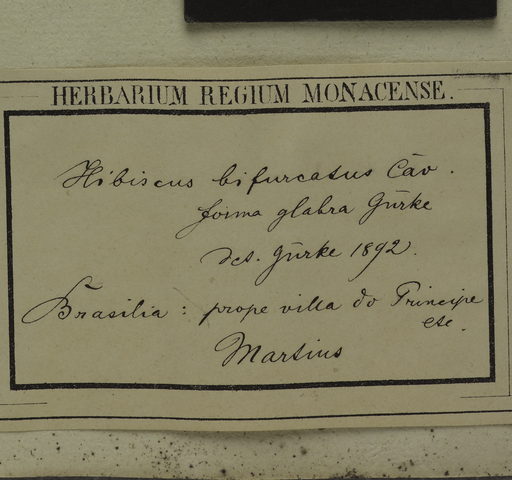 HERBARIUM REGIUM MONACENSE.
Hibiscus bifurcatus Cav.
forma glabra Gürke
det. Gürke 1892.
Brasilia: prope villa do Principe
etc.
Martius